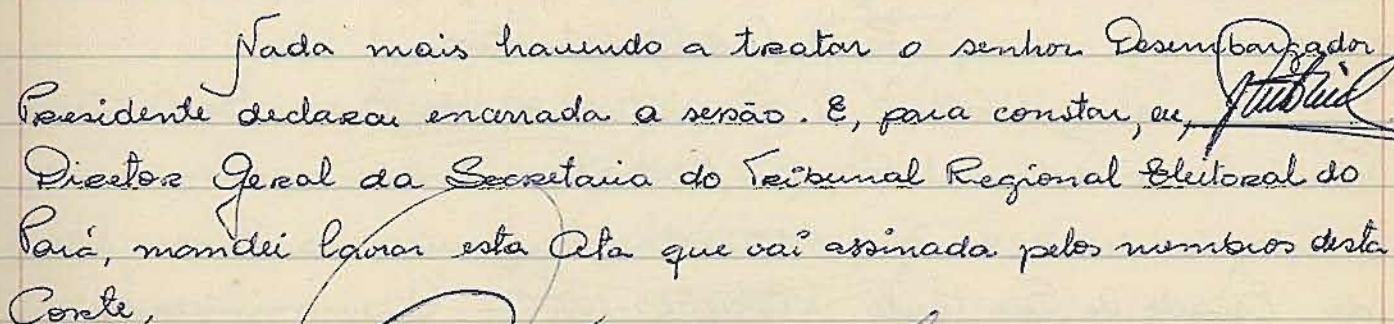 Nada mais havendo a tratar o senhor Desembargador
Presidente declarou encerrada a sessão. E, para constar, eu,
Diretor Geral da Secretaria do Tribunal Regional Eleitoral do
Pará, mandei lavrar esta Ata que vai assinada pelos membros desta
Corte,